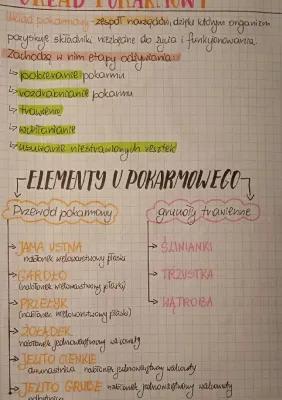 UKŁAD POKARMOWY
Układ pokarmowy - zespół narządów, dzięki którym organizm
pozyskuje składniki niezbędne do życia i funkcjonowania.
Zachodzą w nim etapy odżywiania:
↳ pobieranie pokarmu
↳ rozdrabnianie pokarmu
↳ trawienie
↳ wchłanianie
↳ usuwanie niestrawionych resztek
ELEMENTY U POKARMOWEGO
Przewód pokarmowy
gruczoły trawienne
→ JAMA USTNA
nabłonek wielowarstwowy płaski
→ GARDŁO
(nabłonek wielowarstwowy płaski)
→ PRZEŁYK
(nabłonek wielowarstwowy płaski)
→ ŻOŁĄDEK
nabłonek jednowarstwowy walcowaty
→ JELITO CIENKIE
dwunastnica nabłonek jednowarstwowy walcowaty
→ JELITO GRUBE nabłonek jednowarstwowy walcowaty
→ ŚLINIANKI
→ TRZUSTKA
→ WĄTROBA